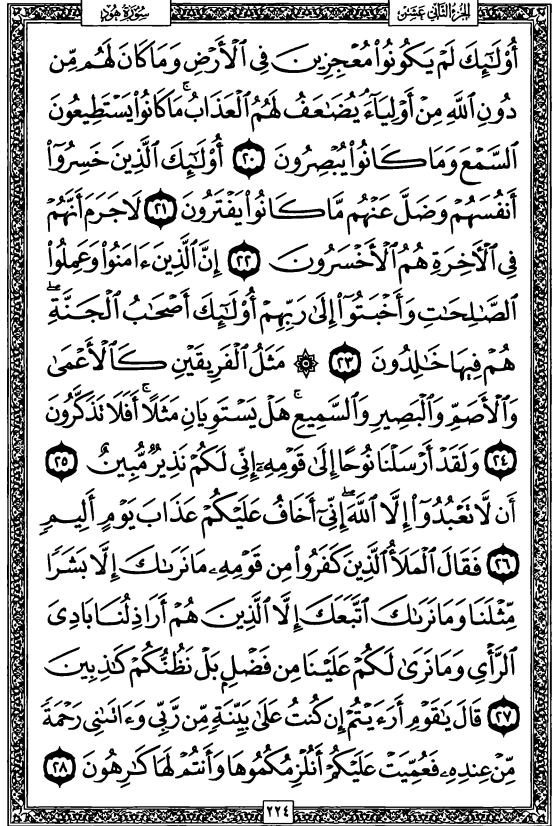 الجزء الثاني عشر
سورة هود
أُوْلَٰٓئِكَ لَمْ يَكُونُواْ مُعْجِزِينَ فِى ٱلْأَرْضِ وَمَا كَانَ لَهُم مِّن
دُونِ ٱللَّهِ مِنْ أَوْلِيَآءَ ۘ يُضَٰعَفُ لَهُمُ ٱلْعَذَابُ ۚ مَا كَانُواْ يَسْتَطِيعُونَ
ٱلسَّمْعَ وَمَا كَانُواْ يُبْصِرُونَ ٢٠ أُوْلَٰٓئِكَ ٱلَّذِينَ خَسِرُوٓاْ
أَنفُسَهُمْ وَضَلَّ عَنْهُم مَّا كَانُواْ يَفْتَرُونَ ٢١ لَا جَرَمَ أَنَّهُمْ
فِى ٱلْأَخِرَةِ هُمُ ٱلْأَخْسَرُونَ ٢٢ إِنَّ ٱلَّذِينَ ءَامَنُواْ وَعَمِلُواْ
ٱلصَّٰلِحَٰتِ وَأَخْبَتُوٓاْ إِلَىٰ رَبِّهِمْ أُوْلَٰٓئِكَ أَصْحَٰبُ ٱلْجَنَّةِ ۖ
هُمْ فِيهَا خَٰلِدُونَ ٢٣ ۞ مَثَلُ ٱلْفَرِيقَيْنِ كَٱلْأَعْمَىٰ
وَٱلْأَصَمِّ وَٱلْبَصِيرِ وَٱلسَّمِيعِ ۚ هَلْ يَسْتَوِيَانِ مَثَلًا ۚ أَفَلَا تَذَكَّرُونَ
٢٤ وَلَقَدْ أَرْسَلْنَا نُوحًا إِلَىٰ قَوْمِهِۦٓ إِنِّى لَكُمْ نَذِيرٌ مُّبِينٌ ٢٥
أَن لَّا تَعْبُدُوٓاْ إِلَّا ٱللَّهَ ۖ إِنِّىٓ أَخَافُ عَلَيْكُمْ عَذَابَ يَوْمٍ أَلِيمٍ
٢٦ فَقَالَ ٱلْمَلَأُ ٱلَّذِينَ كَفَرُواْ مِن قَوْمِهِۦ مَا نَرَىٰكَ إِلَّا بَشَرًا
مِّثْلَنَا وَمَا نَرَىٰكَ ٱتَّبَعَكَ إِلَّا ٱلَّذِينَ هُمْ أَرَاذِلُنَا بَادِىَ
ٱلرَّأْىِ وَمَا نَرَىٰ لَكُمْ عَلَيْنَا مِن فَضْلٍۭ بَلْ نَظُنُّكُمْ كَٰذِبِينَ
٢٧ قَالَ يَٰقَوْمِ أَرَءَيْتُمْ إِن كُنتُ عَلَىٰ بَيِّنَةٍ مِّن رَّبِّى وَءَاتَىٰنِى رَحْمَةً
مِّنْ عِندِهِۦ فَعُمِّيَتْ عَلَيْكُمْ أَنُلْزِمُكُمُوهَا وَأَنتُمْ لَهَا كَٰرِهُونَ ٢٨
٢٢٤